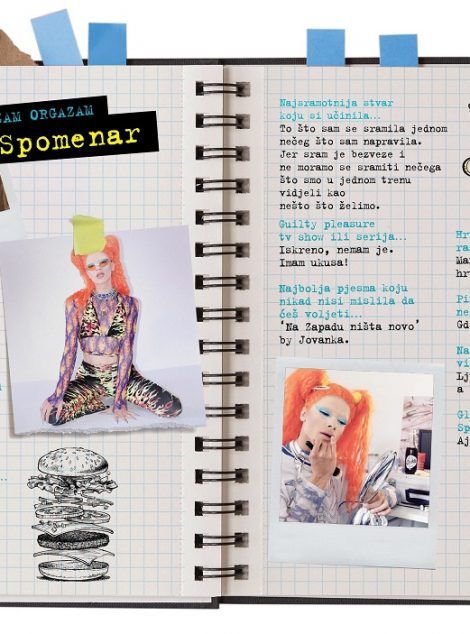 ZAM ORGAZAM
Spomenar
Najsramotnija stvar
koju si učinila...
To što sam se sramila jednom
nečeg što sam napravila.
Jer sram je bezveze i
ne moramo se sramiti nečega
što smo u jednom trenu
vidjeli kao
nešto što želimo.
Guilty pleasure
tv show ili serija...
Iskreno, nemam je.
Imam ukusa!
Najbolja pjesma koju
nikad nisi mislila da
ćeš voljeti...
‘Na Zapadu ništa novo’
by Jovanka.